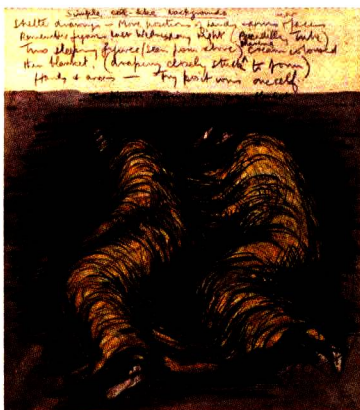 Simple cell like backgrounds
Shelter drawings – More positions of hands – arms – faces
Remember figures last Wednesday night (Piccadilly Tube)
Two sleeping figures (seen from above) cream coloured
thin blanket, (drapery closely stuck to form)
Hands & arms – Try positions oneself